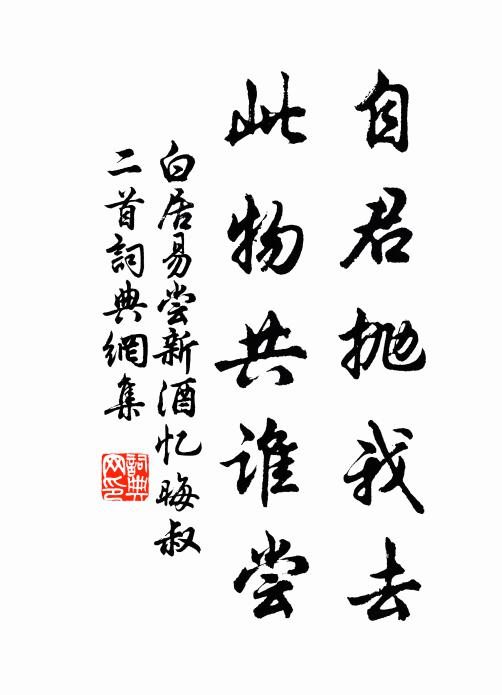 自君抛我去
此物共谁尝
白居易尝新酒忆晦叔
二首詞典網集
詞典網印